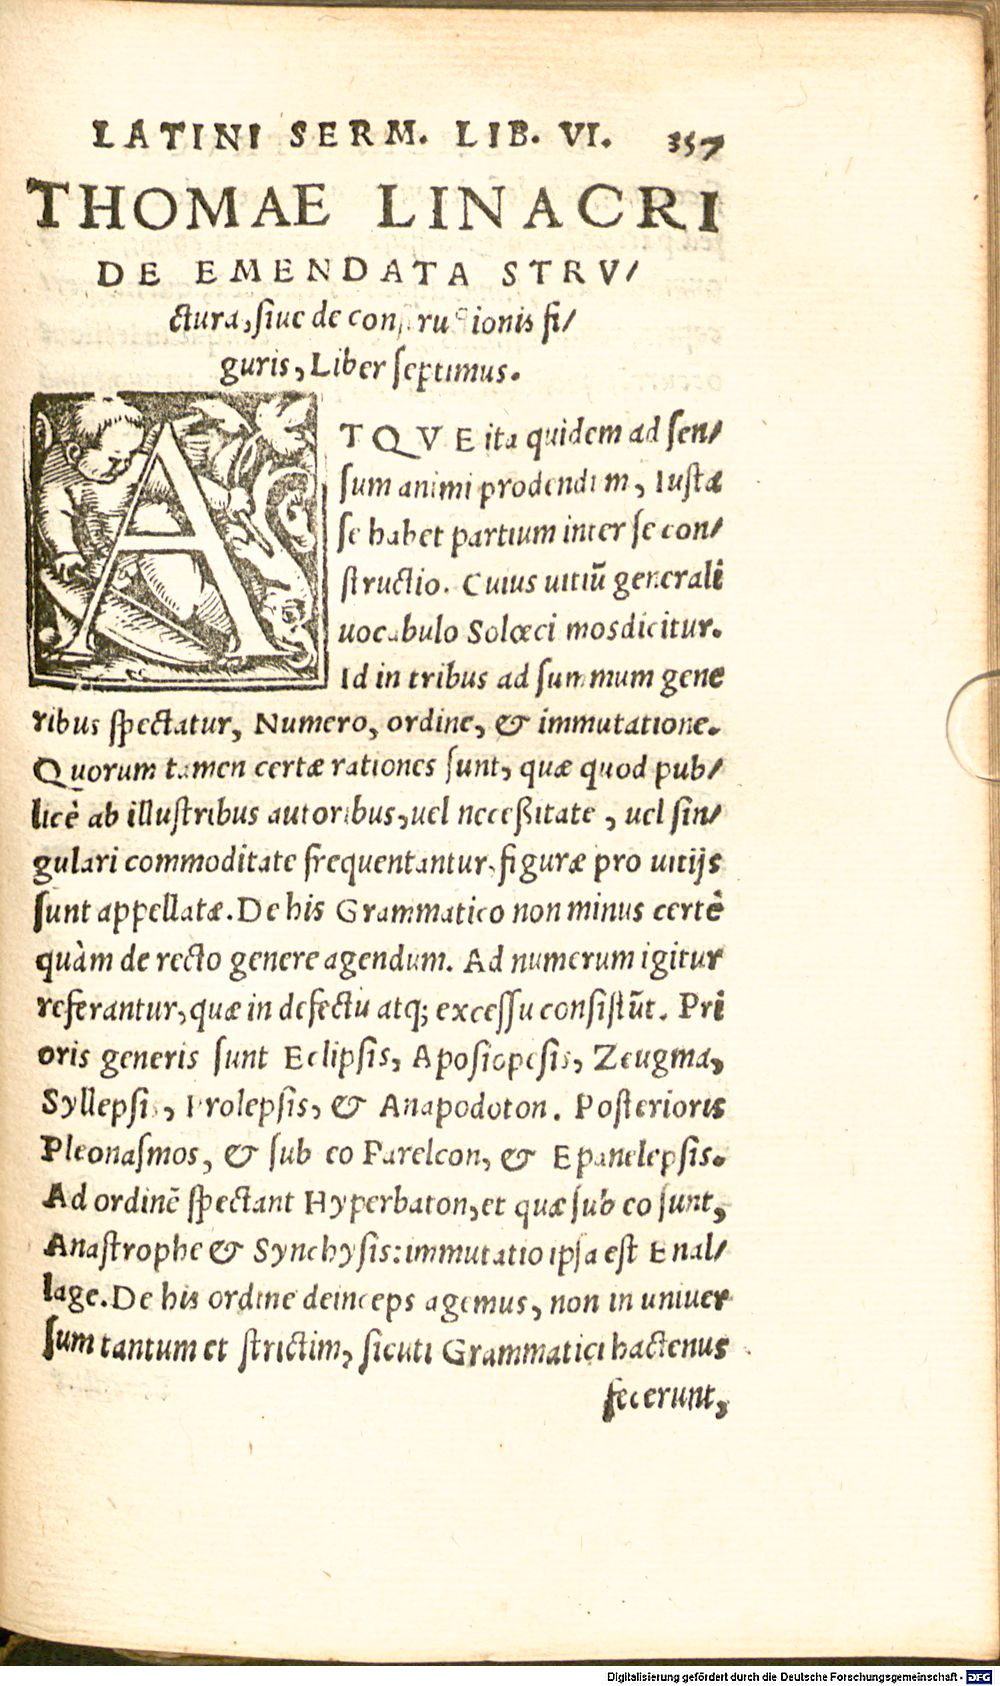 LATINI SERM. LIB. VI. 357
THOMAE LINACRI
DE EMENDATA STRV/
ctura, siue de constructionis fi/
guris, Liber septimus.
ATQVE ita quidem ad sen/
sum animi prodendum, Iustæ
se habet partium inter se con/
structio. Cuius uitiũ generali
uocabulo Solœcismos dicitur.
Id in tribus ad summum gene
ribus spectatur, Numero, ordine, & immutatione.
Quorum tamen certæ rationes sunt, quæ quod pub/
licè ab illustribus autoribus, uel necessitate, uel sin/
gulari commoditate frequentantur, figuræ pro uitijs
sunt appellatæ. De his Grammatico non minus certè
quàm de recto genere agendum. Ad numerum igitur
referantur, quæ in defectu atq; excessu consistũt. Pri
oris generis sunt Eclipsis, Aposiopesis, Zeugma,
Syllepsis, Prolepsis, & Anapodoton. Posterioris
Pleonasmos, & sub eo Parelcon, & Epanelepsis.
Ad ordinẽ spectant Hyperbaton, et quæ sub eo sunt,
Anastrophe & Synchysis: immutatio ipsa est Enal/
lage. De his ordine deinceps agemus, non in uniuer
sum tantum et strictim, sicuti Grammatici hactenus
fecerunt,
Digitalisierung gefördert durch die Deutsche Forschungsgemeinschaft - DFG